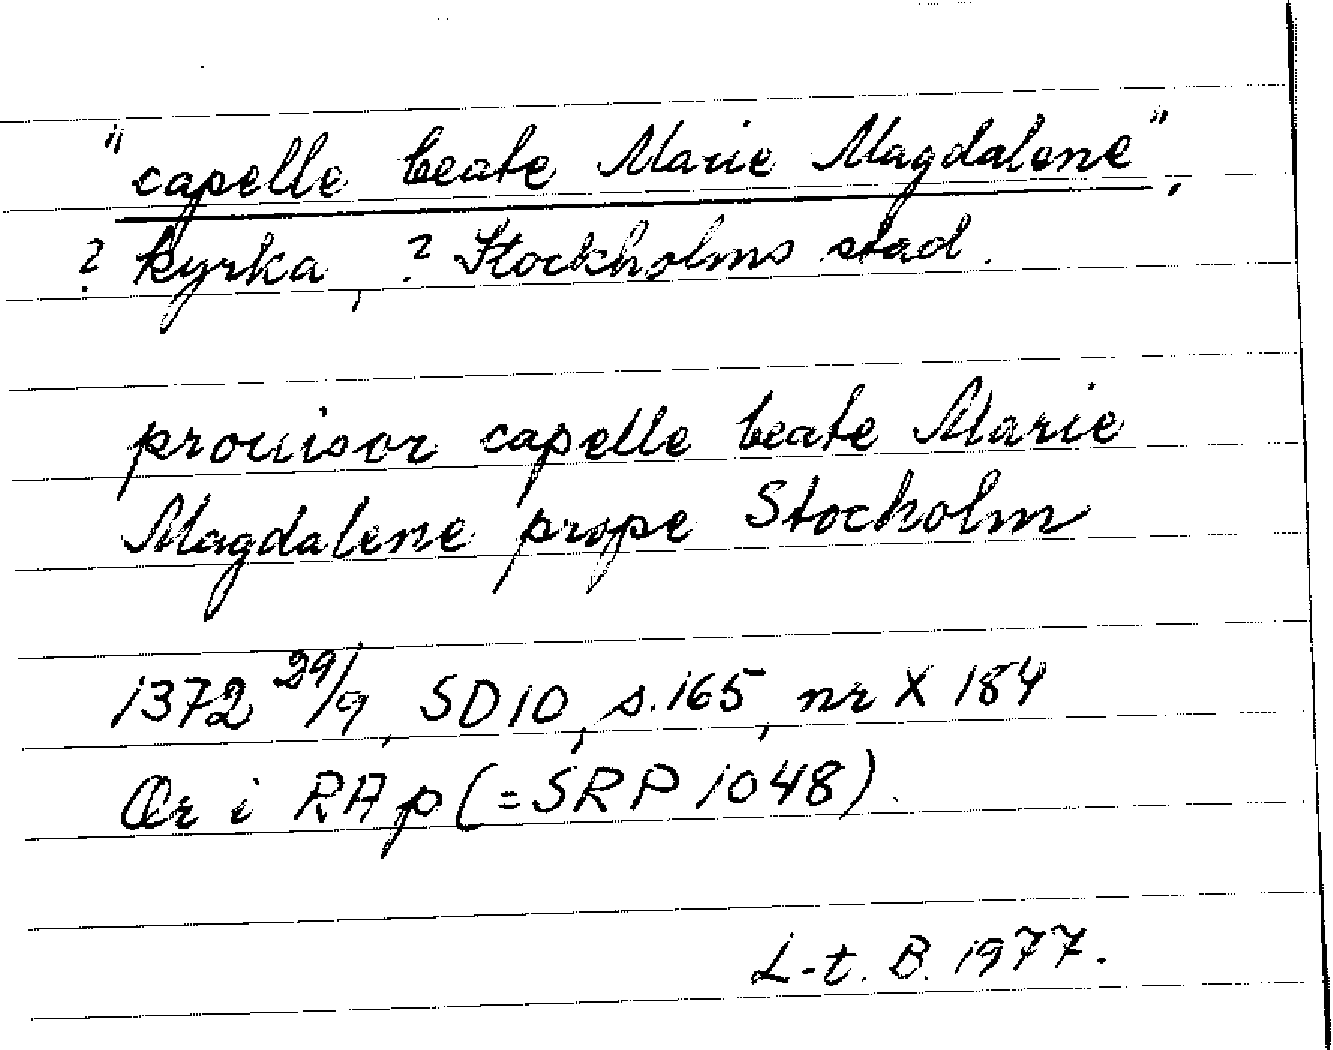 "capelle beate Marie Magdalene",
? kyrka, ? Stockholms stad.
prouisor capelle beate Marie
Magdalene prope Stocholm
1372 29/9, SD10, s.165, nr X 184
Or i RAp (=SRP 1048).
L-t. B. 1977.